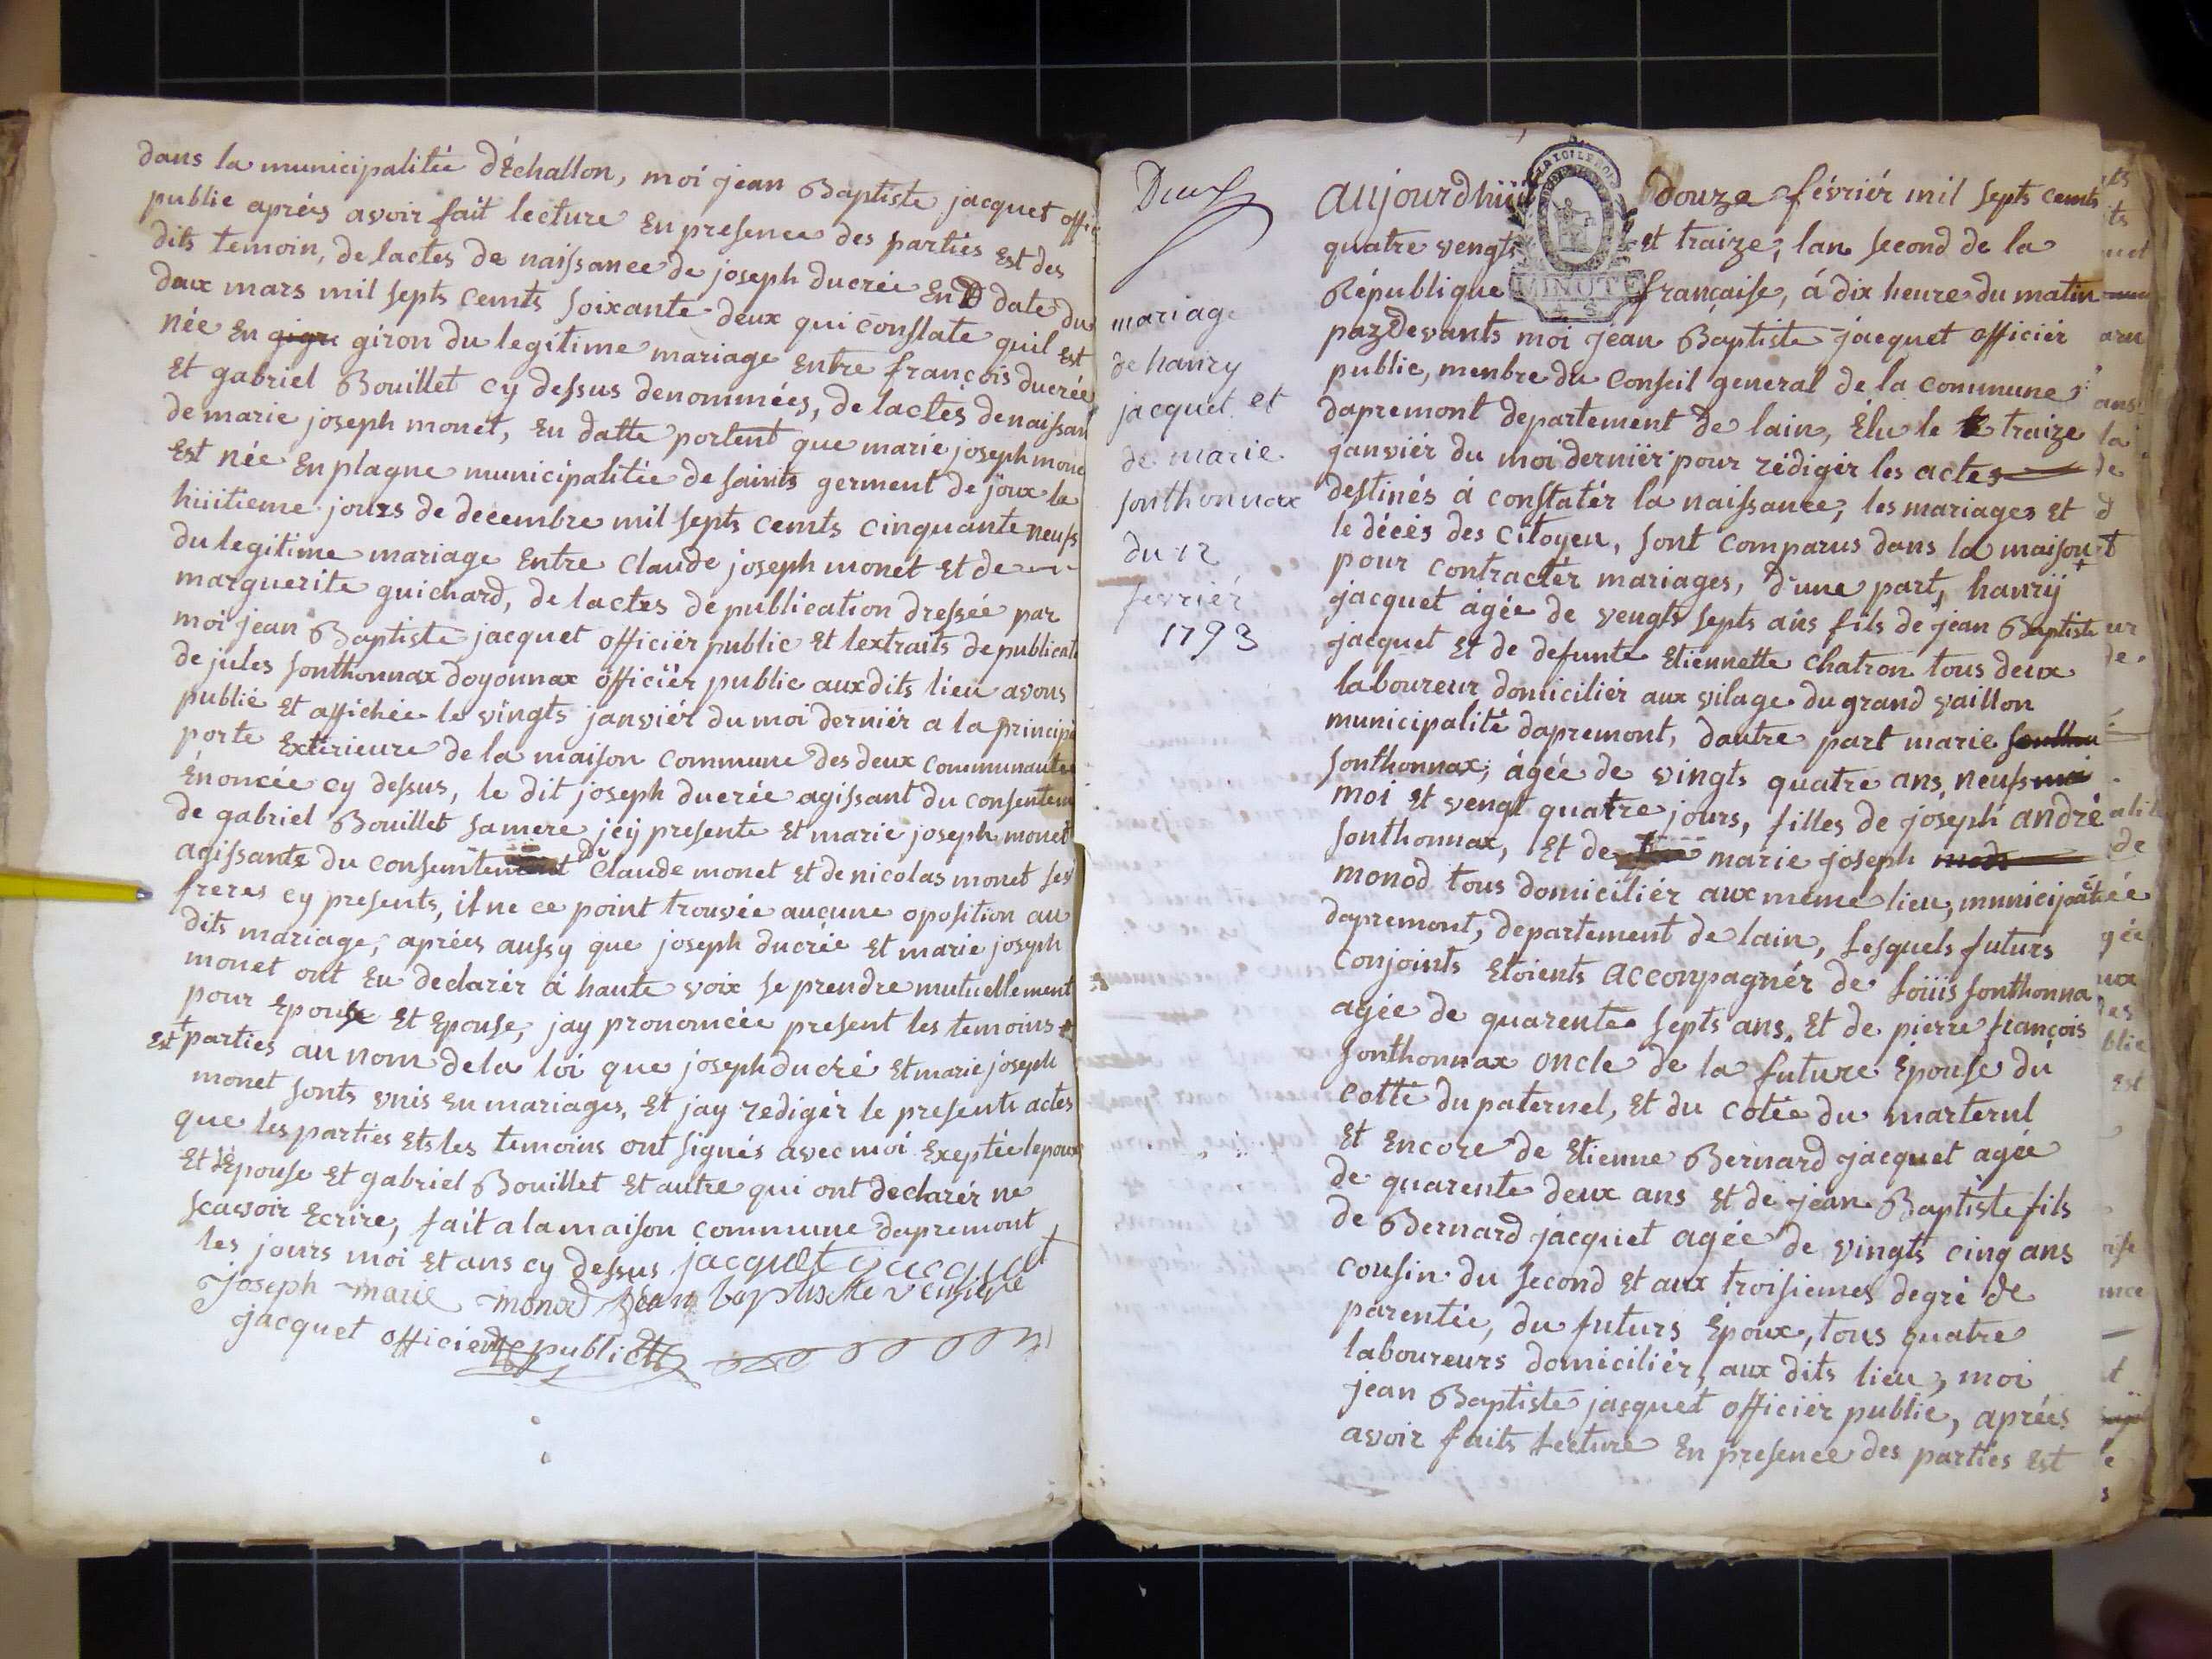 dans la municipalitée d'Échallon, moi jean Baptiste jacquet offic
public aprées avoir fait lecture En presence des parties Est des
dits temoin, de lactes de naissance de joseph ducrée En date du
deux mars mil septs cemts soixante deux qui constate quil Est
née En gigre giron du legitime mariage Entre françois ducrée
Et gabriel Bouillet cy dessus denommées, de lactes de naissan
de marie joseph monet, En datte portent que marie joseph mone
Est née En plagne municipalitée de saints germent de joux le
hüitieme jours de decembre mil septs cemts cinquante neufs
du legitime mariage Entre Claude joseph monet Et de
marguerite guichard, de lactes de publication dressée par
moi jean Baptiste jacquet officiér public Et lextraits de publicat
de jules sonthonnax doyonnax officiér public aux dits lieu avons
publié Et affichée le vingts janviér du moi derniér a la princip
porte Extérieure de la maison commune des deux communautes
Énoncée cy dessus, le dit joseph ducrée agissant du consentem
de gabriel Bouillet samere jcy presente Et marie joseph monet
agissante du consentement de Claude monet Et de nicolas monet ses
freres cy presents, il ne ce point trouvée aucune oposition au
dits mariage, aprées aussy que joseph ducrée Et marie joseph
monet ont Eu declarér á haute voix se prendre mutuellement
pour Epouse Et Epouse, jay prononcée present les temoins
Est parties au nom de la loi que joseph ducré Et marie joseph
monet sonts vnis En mariages, Et jay redigér le presents actes
que les parties Ets les temoins ont signés avec moi Exeptée lepoux
Et lEpouse Et gabriel Bouillet Et autre qui ont declarér ne
scavoir Ecrire, fait a la maison commune dapremont
les jours moi Et ans cy dessus jacquet jacquet
joseph marie monod jean baptiste
jacquet officier public
Deux
mariage
de hanry
jacquet et
de marie
sonthonnax
du 12
fevriér
1793
aujourdhüi douze févriér mil septs cemts
quatre vengts et traize, lan second de la
République française, á dix heure du matin
MINUTE
par devants moi jean Baptiste jacquet officiér
public, menbre du Conseil general de la commune
dapremont departement de lain, Élu le traize
janviér du moi derniér pour rédigér les actes
destinés á constatér la naissance, les mariages Et
le décés des Citoyen, sont comparus dans la maison
pour contractér mariages, d'une part, hanrij
jacquet ágée de vengts septs ans fils de jean Baptiste
jacquet Et de défunte Etiennette chatron tous deux
laboureur domiciliér aux vilage du grand vaillon
municipalité dapremont, dautre part marie sonthon
sonthonnax, ágée de vingts quatre ans, neufs moi
moi Et vengt quatre jours, filles de joseph andré
sonthonnax, Et de marie joseph mod
monod tous domiciliér aux méme lieu, municipalitée
dapremont, departement de lain, Lesquels futurs
conjoints Etoients acconpagnér de Loüis sonthonna
agée de quarente septs ans, Et de pierre françois
sonthonnax oncle de la future Épouse du
cotté du paternel, Et du cotée du marternl
Et Encore de Etienne Bernard jacquet agée
de quarente deux ans Et de jean Baptiste fils
de Bernard jacquet agée de vingts cinq ans
cousin du second Et aux troisiemes degré de
parentée, du futurs Époux, tous quatre
laboureurs domiciliér, aux dits lieu, moi
jean Baptiste jacquet officiér public, aprées
avoir faits Lecture En presence des parties Est